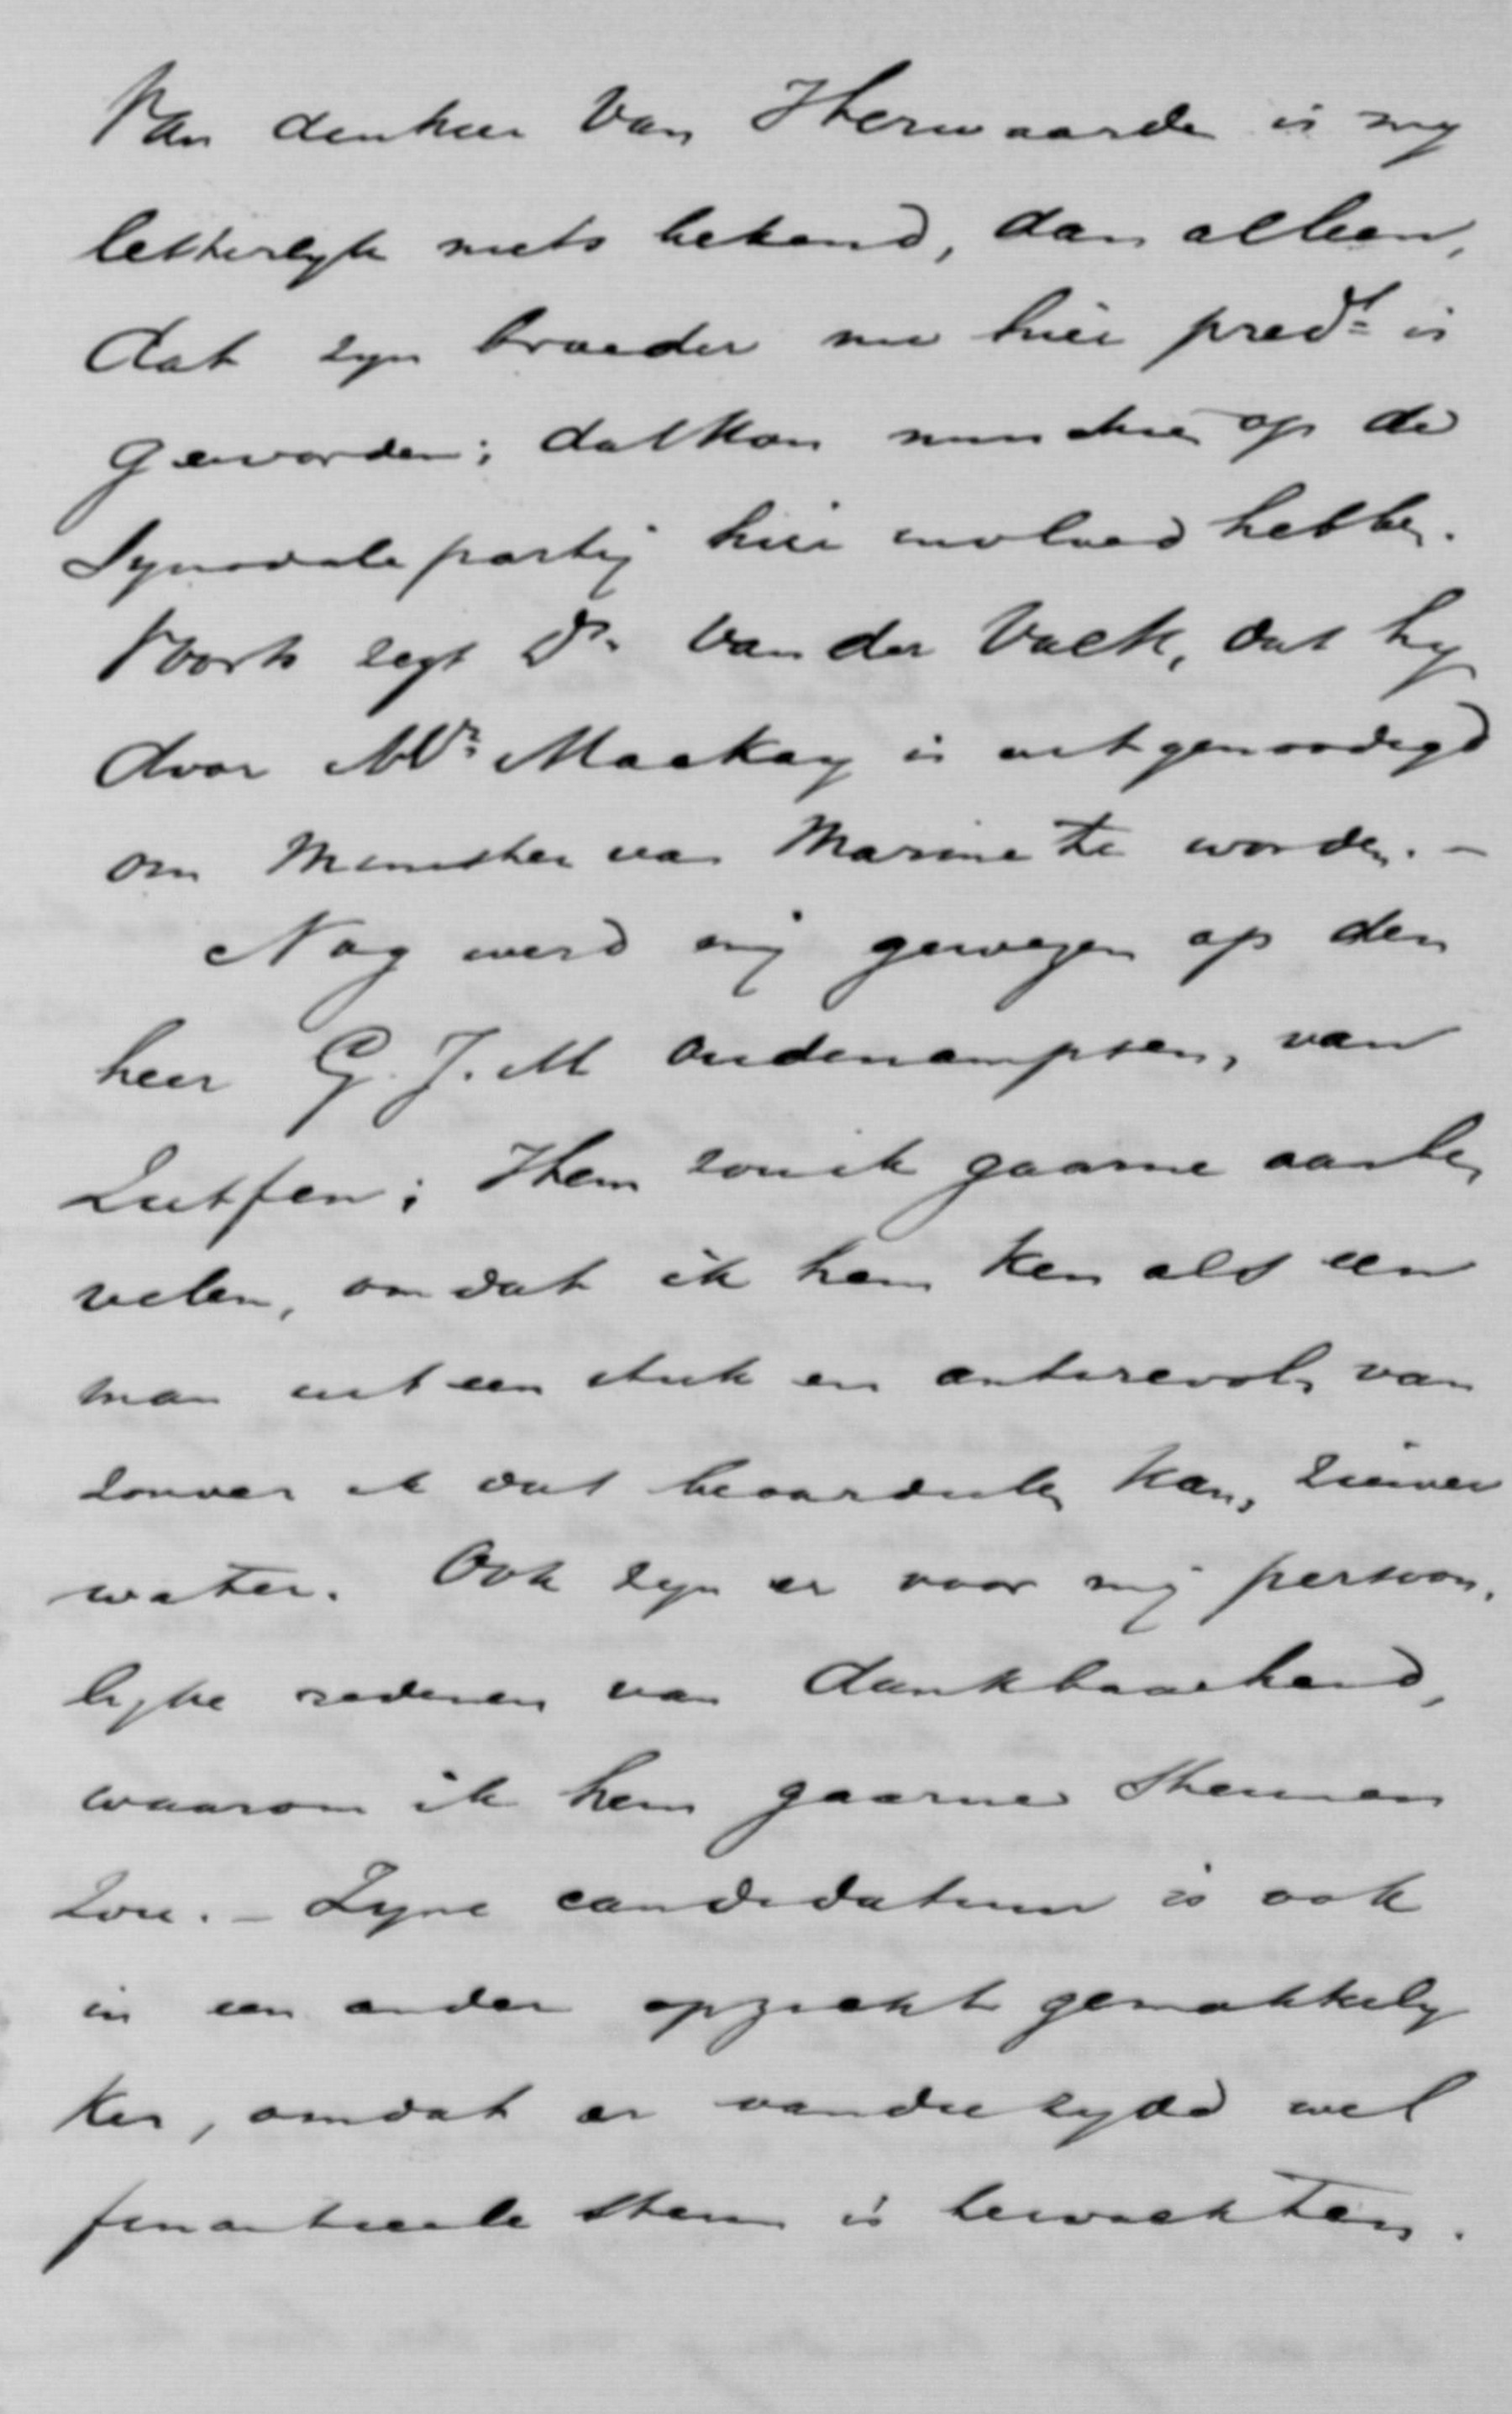 Van den heer Van Herwaarde is my
letterlyk niets bekend, dan alleen,
dat zyn broeder nu hier pred^t is
geworden; dat kan misschien op de
Synodale partij hier invloed hebben.
Voorts zegt D^r. Van der Valk, dat hy
door M^r. Mackay is uitgenoodigd
om Minister van Marine te worden. –
Nog werd mij gewezen op den
heer G. J. M Oudenampsen, van
Zutfen; Hem zou ik gaarne aanbe
velen, omdat ik hem ken als een
man uit een stuk en antirevol. van
zoover ik dat beoordeelen kan, zuiver
water. Ook zyn er voor mij persoon.
lyke redenen van dankbaarheid,
waarom ik hem gaarne steunen
zou. – Zyne candidatuur is ook
in een ander opzicht gemakkely
ker, omdat er van die zyde wel
financieele steun is te wachten.